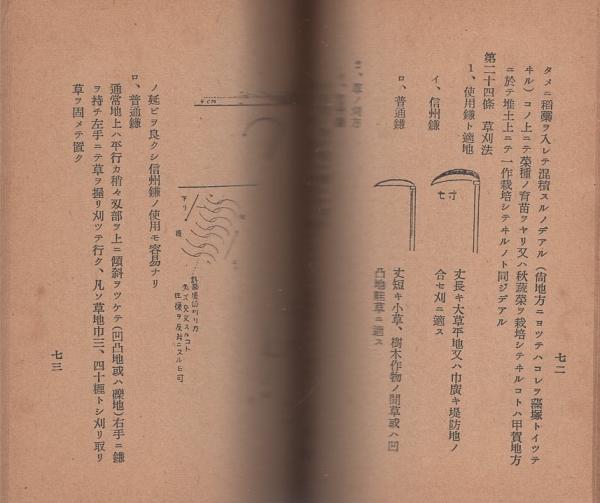 七二
タメニ稻藁ヲ入レテ混積スルノデアル（尙地方ニヨツテハコレヲ藻塚トイツテ
ヰル）コノ上ニテ菜種ノ育苗ヲヤリ又ハ秋蔬菜ヲ栽培シテヰルコトハ甲賀地方
ニ於テ堆土上ニテ一作栽培シテヰルノト同ジデアル
第二十四條　草刈法
1、使用鎌ト適地
イ、信州鎌
七寸
丈長キ大草平地又ハ巾廣キ堤防地ノ
合セ刈ニ適ス
ロ、普通鎌
丈短キ小草、樹木作物ノ間草或ハ凹
凸地畦草ニ適ス
4cm
ノ延ビヲ良クシ信州鎌ノ使用モ容易ナリ
ロ、普通鎌
通常地上ハ平行カ稍々刄部ヲ上ニ傾斜ヲツケテ（凹凸地或ハ礫地）右手ニ鎌
ヲ持チ左手ニテ草ヲ握リ刈ツテ行ク、凡ソ草地巾三、四十糎トシ刈リ取リ
草ヲ固メテ置ク
七三